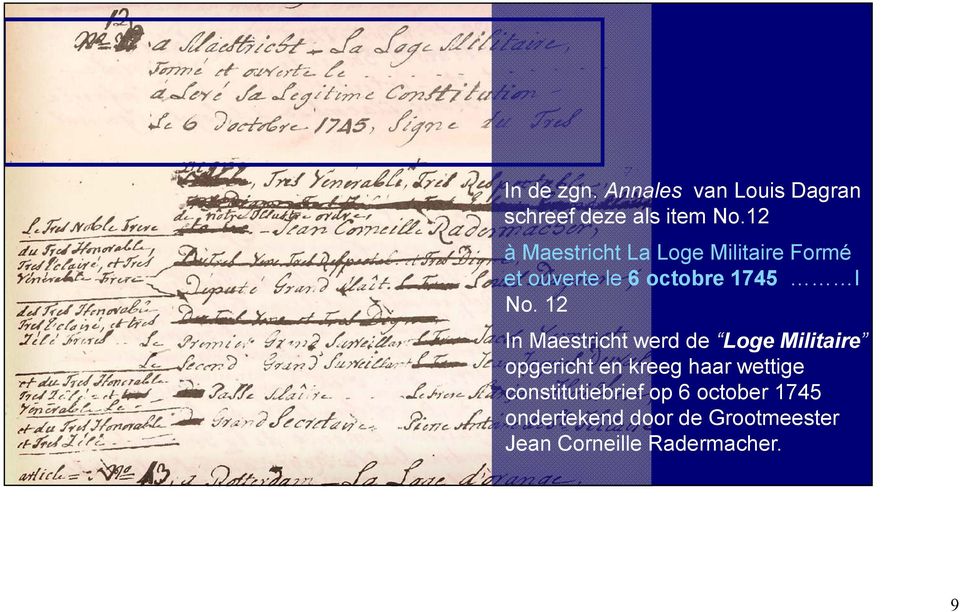 12
a Maestricht – La Loge Militaire,
Formé et ouverte le
à Levé Sa Legitime Constitution –
Le 6 d'octobre 1745, Signe du Tres
Tres Vénérable, Tres Resp
Le Tres Noble Frere de nôtre Illustre ordre, – Jean Corneille Radermacher,
du Tres Honorable,
Tres Eclairé, et Tres
Vénérable Frere Député Grand Maît.
des Tres Honorable,
Tres Eclairé, et tres
Zélé Freres. Le Premier Grand Surveillant
Le Second Grand Surveillant
et du Tres Honorable
Tres Zélé et Passé Maître
Vénérable Le
et du Tres Honorable Grand Secretaire
et Tres Zélé
article – No 13, a Rotterdam – La Loge d'orange,
In de zgn. Annales van Louis Dagran
schreef deze als item No.12
à Maestricht La Loge Militaire Formé
et ouverte le 6 octobre 1745 ………I
No. 12
In Maestricht werd de “Loge Militaire”
opgericht en kreeg haar wettige
constitutiebrief op 6 october 1745
ondertekend door de Grootmeester
Jean Corneille Radermacher.
9